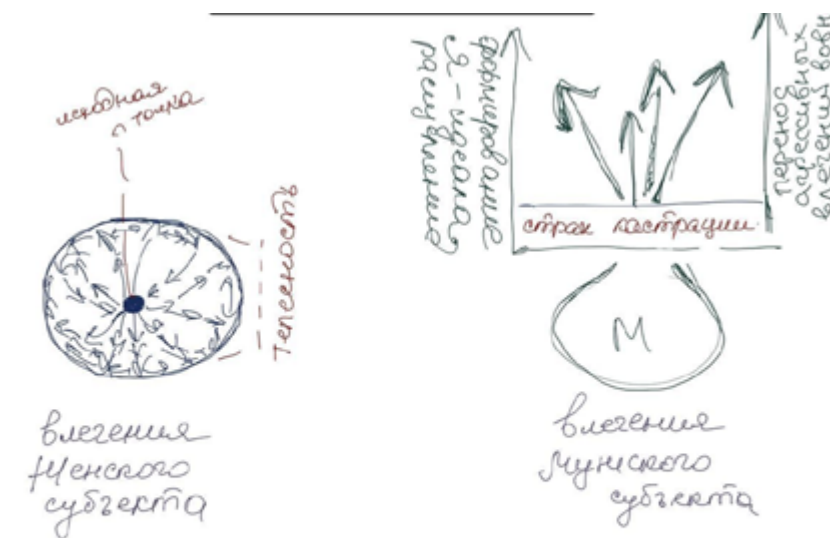 исходная
точка
телесность
влечения
Женского
субъекта
формирование
Я-идеала
расщепление
страх кастрации
перенос
агрессивных
влечений вовн
М
влечения
Мужского
субъекта